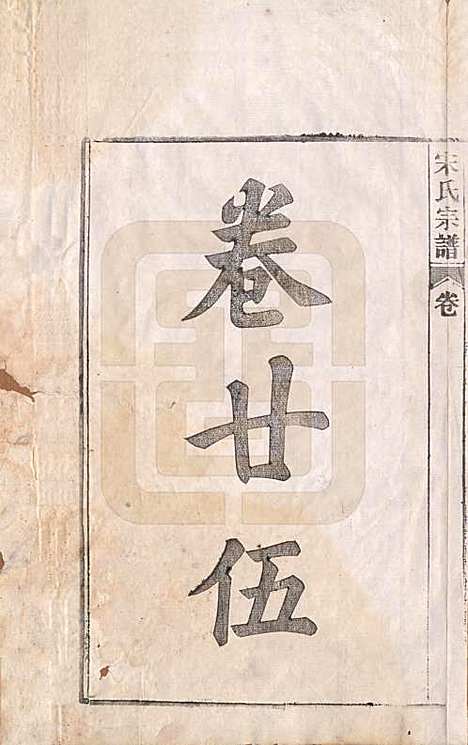 宋氏宗譜
卷
卷廿伍